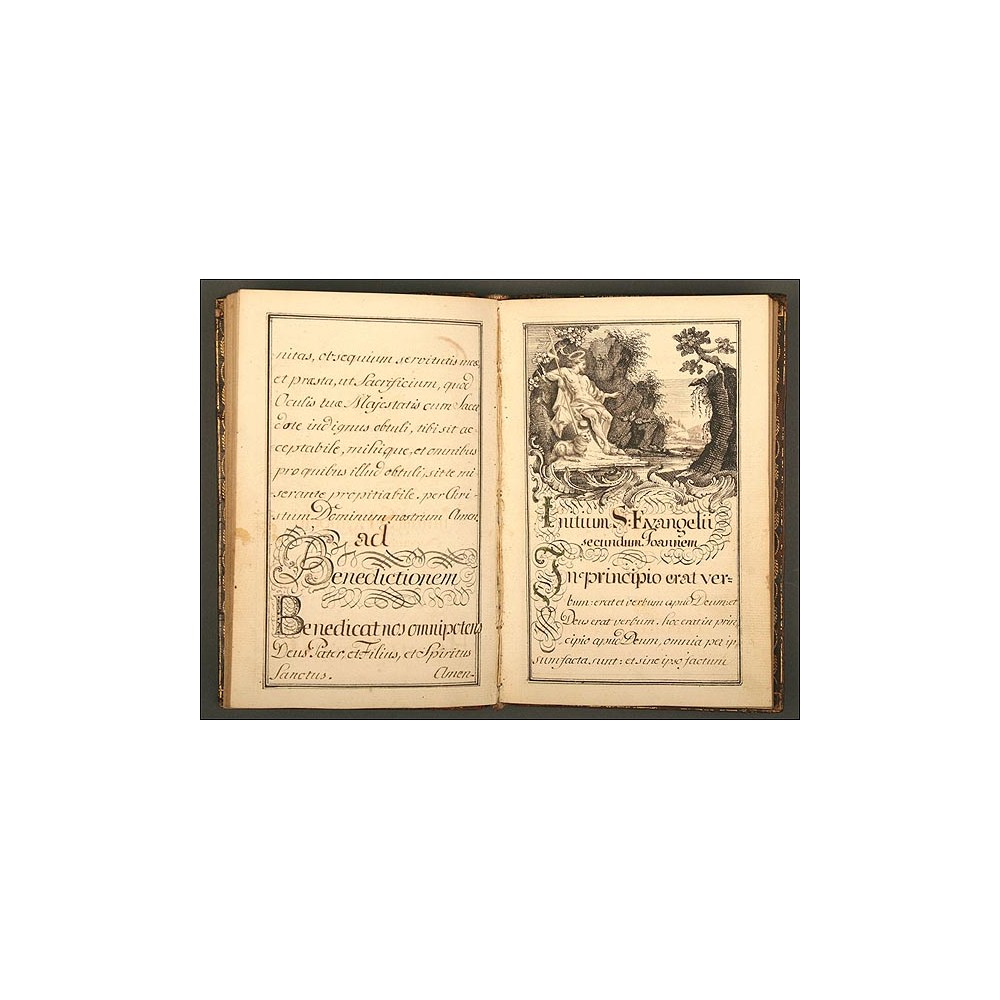 nitas, obsequium servitutis meæ
et præsta, ut Sacrificium, quod
Oculis tuæ Majestatis cum Sacer
dote indignus obtuli, tibi sit ac-
ceptabile, mihique, et omnibus
pro quibus illud obtuli, sit te mi-
serante propitiabile. per Chri-
stum Dominum nostrum Amen.
ad
Benedictionem
Benedicat nos omnipotens
Deus Pater, et Filius, et Spiritus
Sanctus. Amen-
Initium S: Evangelii
secundum Joannem
In principio erat ver=
bum: erat et verbum apud Deum et
Deus erat verbum. hoc erat in prin
cipio apud Deum, omnia per ip,
sum facta sunt: et sine ipso factum